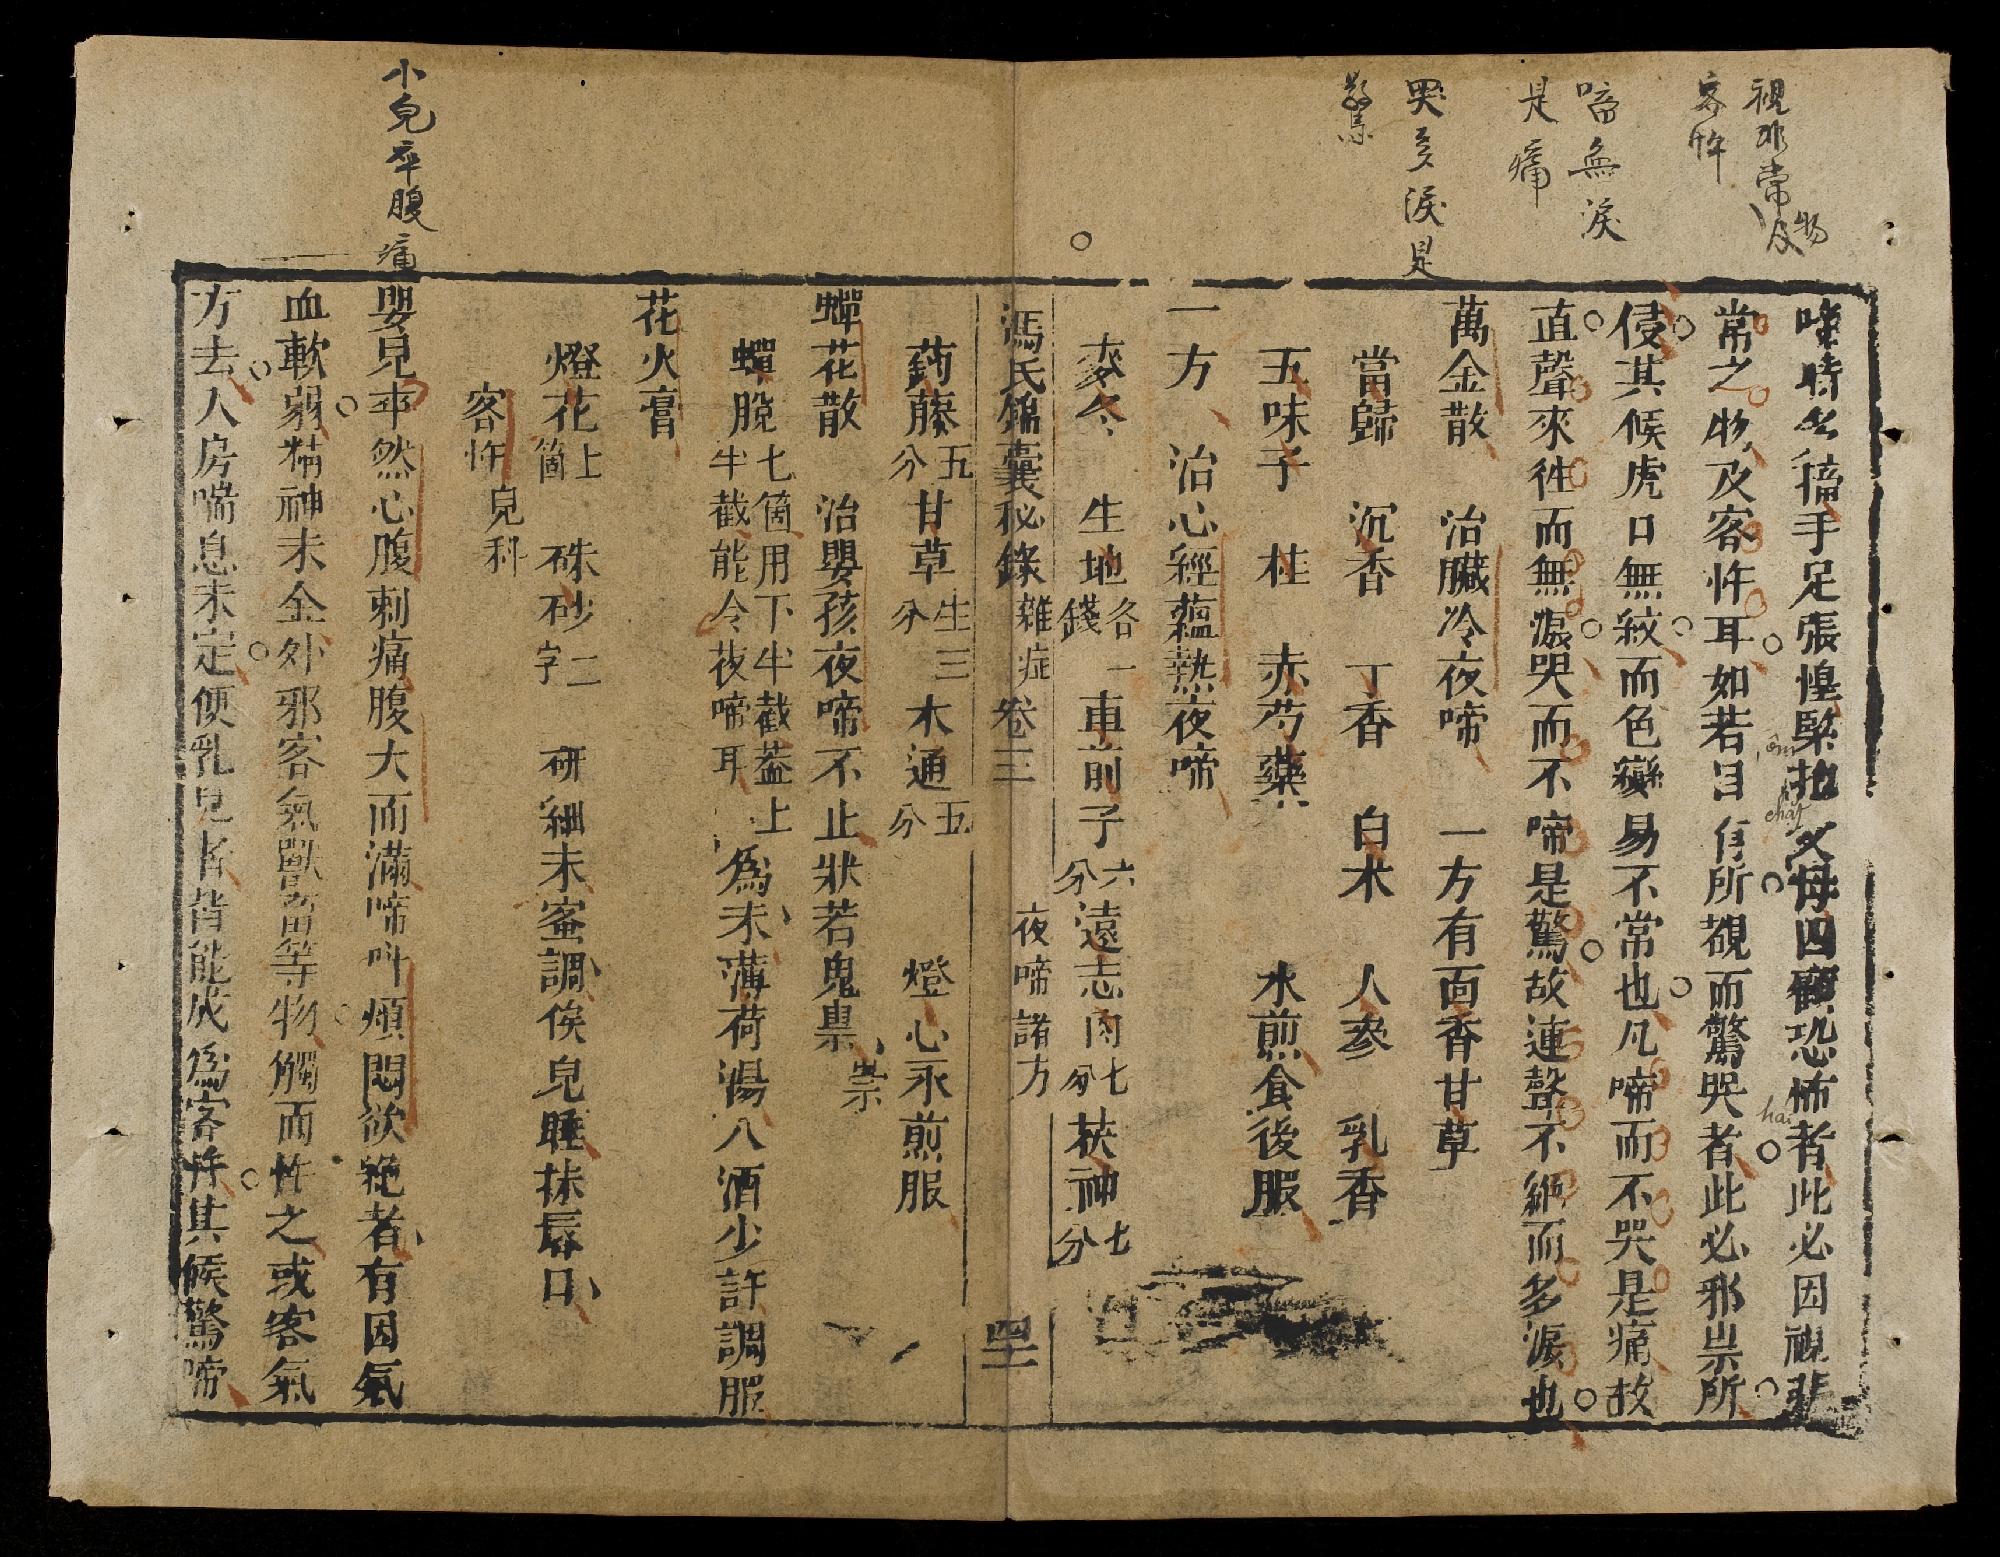 視非常物及
客忤
啼無淚
是痛
哭多淚是
驚
小兒卒腹痛
啼時名搐手足張惶緊抱父母四顧恐怖者此必因視非
ôm chặt
hãi
常之物及客忤耳如若目有所覩而驚哭者此必邪祟所
侵其候虎口無紋而色變易不常也凡啼而不哭是痛故
直聲來徃而無淚哭而不啼是驚故連聲不絕而多淚也
萬金散　治臟冷夜啼　一方有茴香甘草
當歸　沉香　丁香　白朮　人參　乳香
五味子　桂　赤芍藥　水煎食後服
一方　治心經蘊熱夜啼
麥冬　生地各一錢　車前子六分　遠志肉七分　茯神七分
馮氏錦囊秘錄　雜症　卷三　夜啼諸方　四十二
鈎藤五分　甘草生三分　木通五分　燈心水煎服
蟬花散　治嬰孩夜啼不止狀若鬼祟
祟
蟬脫七箇用下半截葢上半截能令夜啼耳　為末薄荷湯入酒少許調服
花火膏
燈花上箇　硃砂二字　研細末蜜調俟兒睡抹唇口
客忤　兒科
嬰兒卒然心腹刺痛腹大而滿啼呌煩悶欲絕者有因氣
血軟弱精神未全外邪客氣獸畜等物觸而忤之或客氣
方去人房喘息未定便乳兒者皆能成為客忤其候驚啼